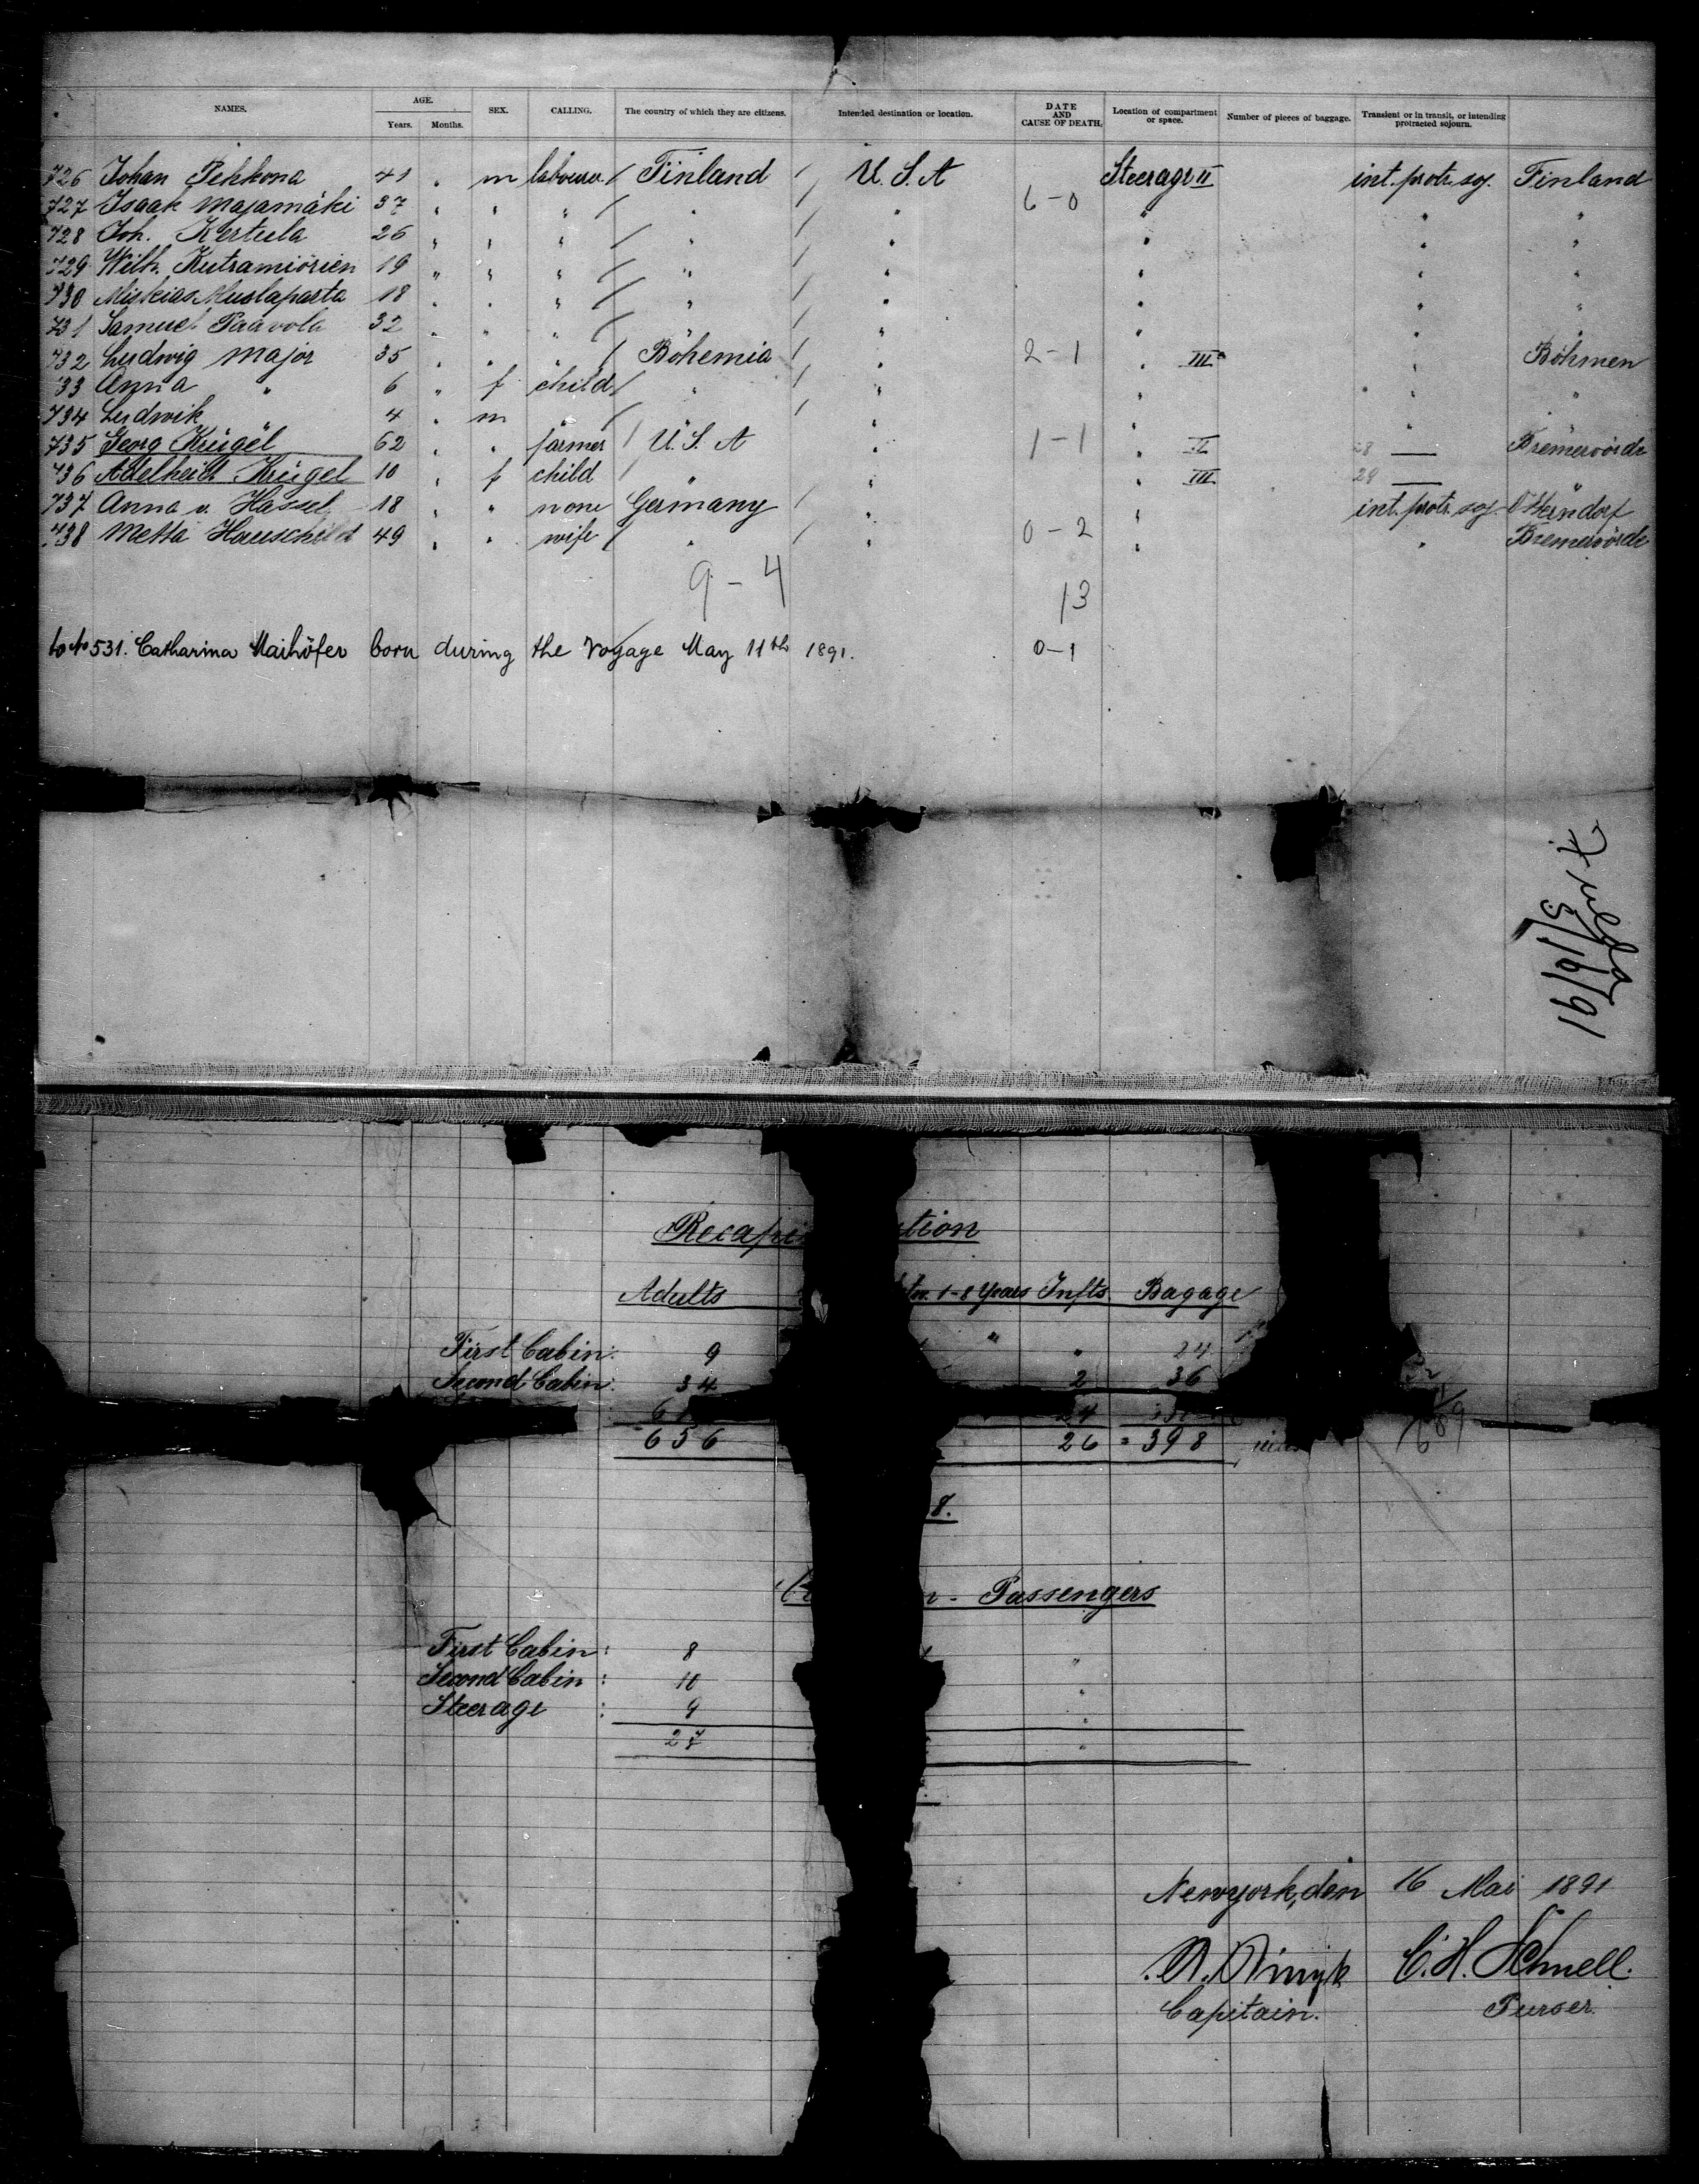 NAMES. AGE. Years. Months. SEX. CALLING. The country of which they are citizens. Intended destination or location. DATE AND CAUSE OF DEATH. Location of compartment or space. Number of pieces of baggage. Transient or in transit, or intending protracted sojourn.
726 Johan Pekkona 41 " m labourer / Finland / U.S.A Steerage II int. protr. soj. Finland
727 Isaak Majamäki 37 " " " / " / " 6-0 " " "
728 Joh. Kertula 26 " " " / " / " " " "
729 Wilh. 19 " " " / " / " " " "
730 18 " " " / " / " " " "
731 Samuel Paavola 32 " " " / / " " " "
732 Ludwig Major 35 " " " / Bohemia / " 2-1 " III " Böhmen
33 Anna " 6 " f child / " / " " " "
734 Ludwik " 4 " m " / " / " " "
735 Georg Krügel 62 " " farmer / U.S.A " 1-1 " II 28 — Bremervörde
736 Adelheid Krügel 10 " f child / " " " III 29 —
737 Anna v. Hassel 18 " " none Germany / " " int. protr. soj. Osterndorf
738 Metta Hauschild 49 " " wife / " / " 0-2 " " Bremervörde
9-4 13
to No 531. Catharina Maihöfer born during the voyage May 11th 1891. 0-1
Fulda
5/16/91
Recapi tion
Adults 1-8 Years Infts Bagage
First Cabin: 9 " " 24
Second Cabin: 34 2 36
24
656 26 = 398
8.
n - Passengers
First Cabin: 8 "
Second Cabin: 10 "
Steerage: 9 "
27 "
Newyork, den 16 Mai 1891
C. H. Schnell.
Capitain. Purser.